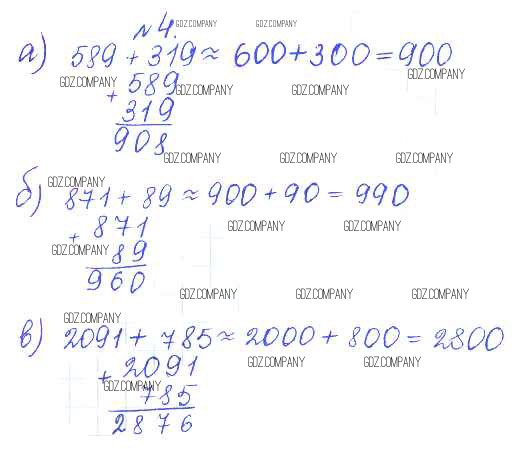 № 4. GDZ.COMPANY GDZ.COMPANY
а) 589 + 319 ≈ 600 + 300 = 900
GDZ.COMPANY + 589 GDZ.COMPANY GDZ.COMPANY GDZ.COMPANY
319
908
GDZ.COMPANY GDZ.COMPANY GDZ.COMPANY
GDZ.COMPANY
б) 871 + 89 ≈ 900 + 90 = 990
+ 871 GDZ.COMPANY GDZ.COMPANY
GDZ.COMPANY 89
960
GDZ.COMPANY GDZ.COMPANY GDZ.COMPANY
GDZ.COMPANY
в) 2091 + 785 ≈ 2000 + 800 = 2800
+ 2091 GDZ.COMPANY GDZ.COMPANY
GDZ.COMPANY 785
2876